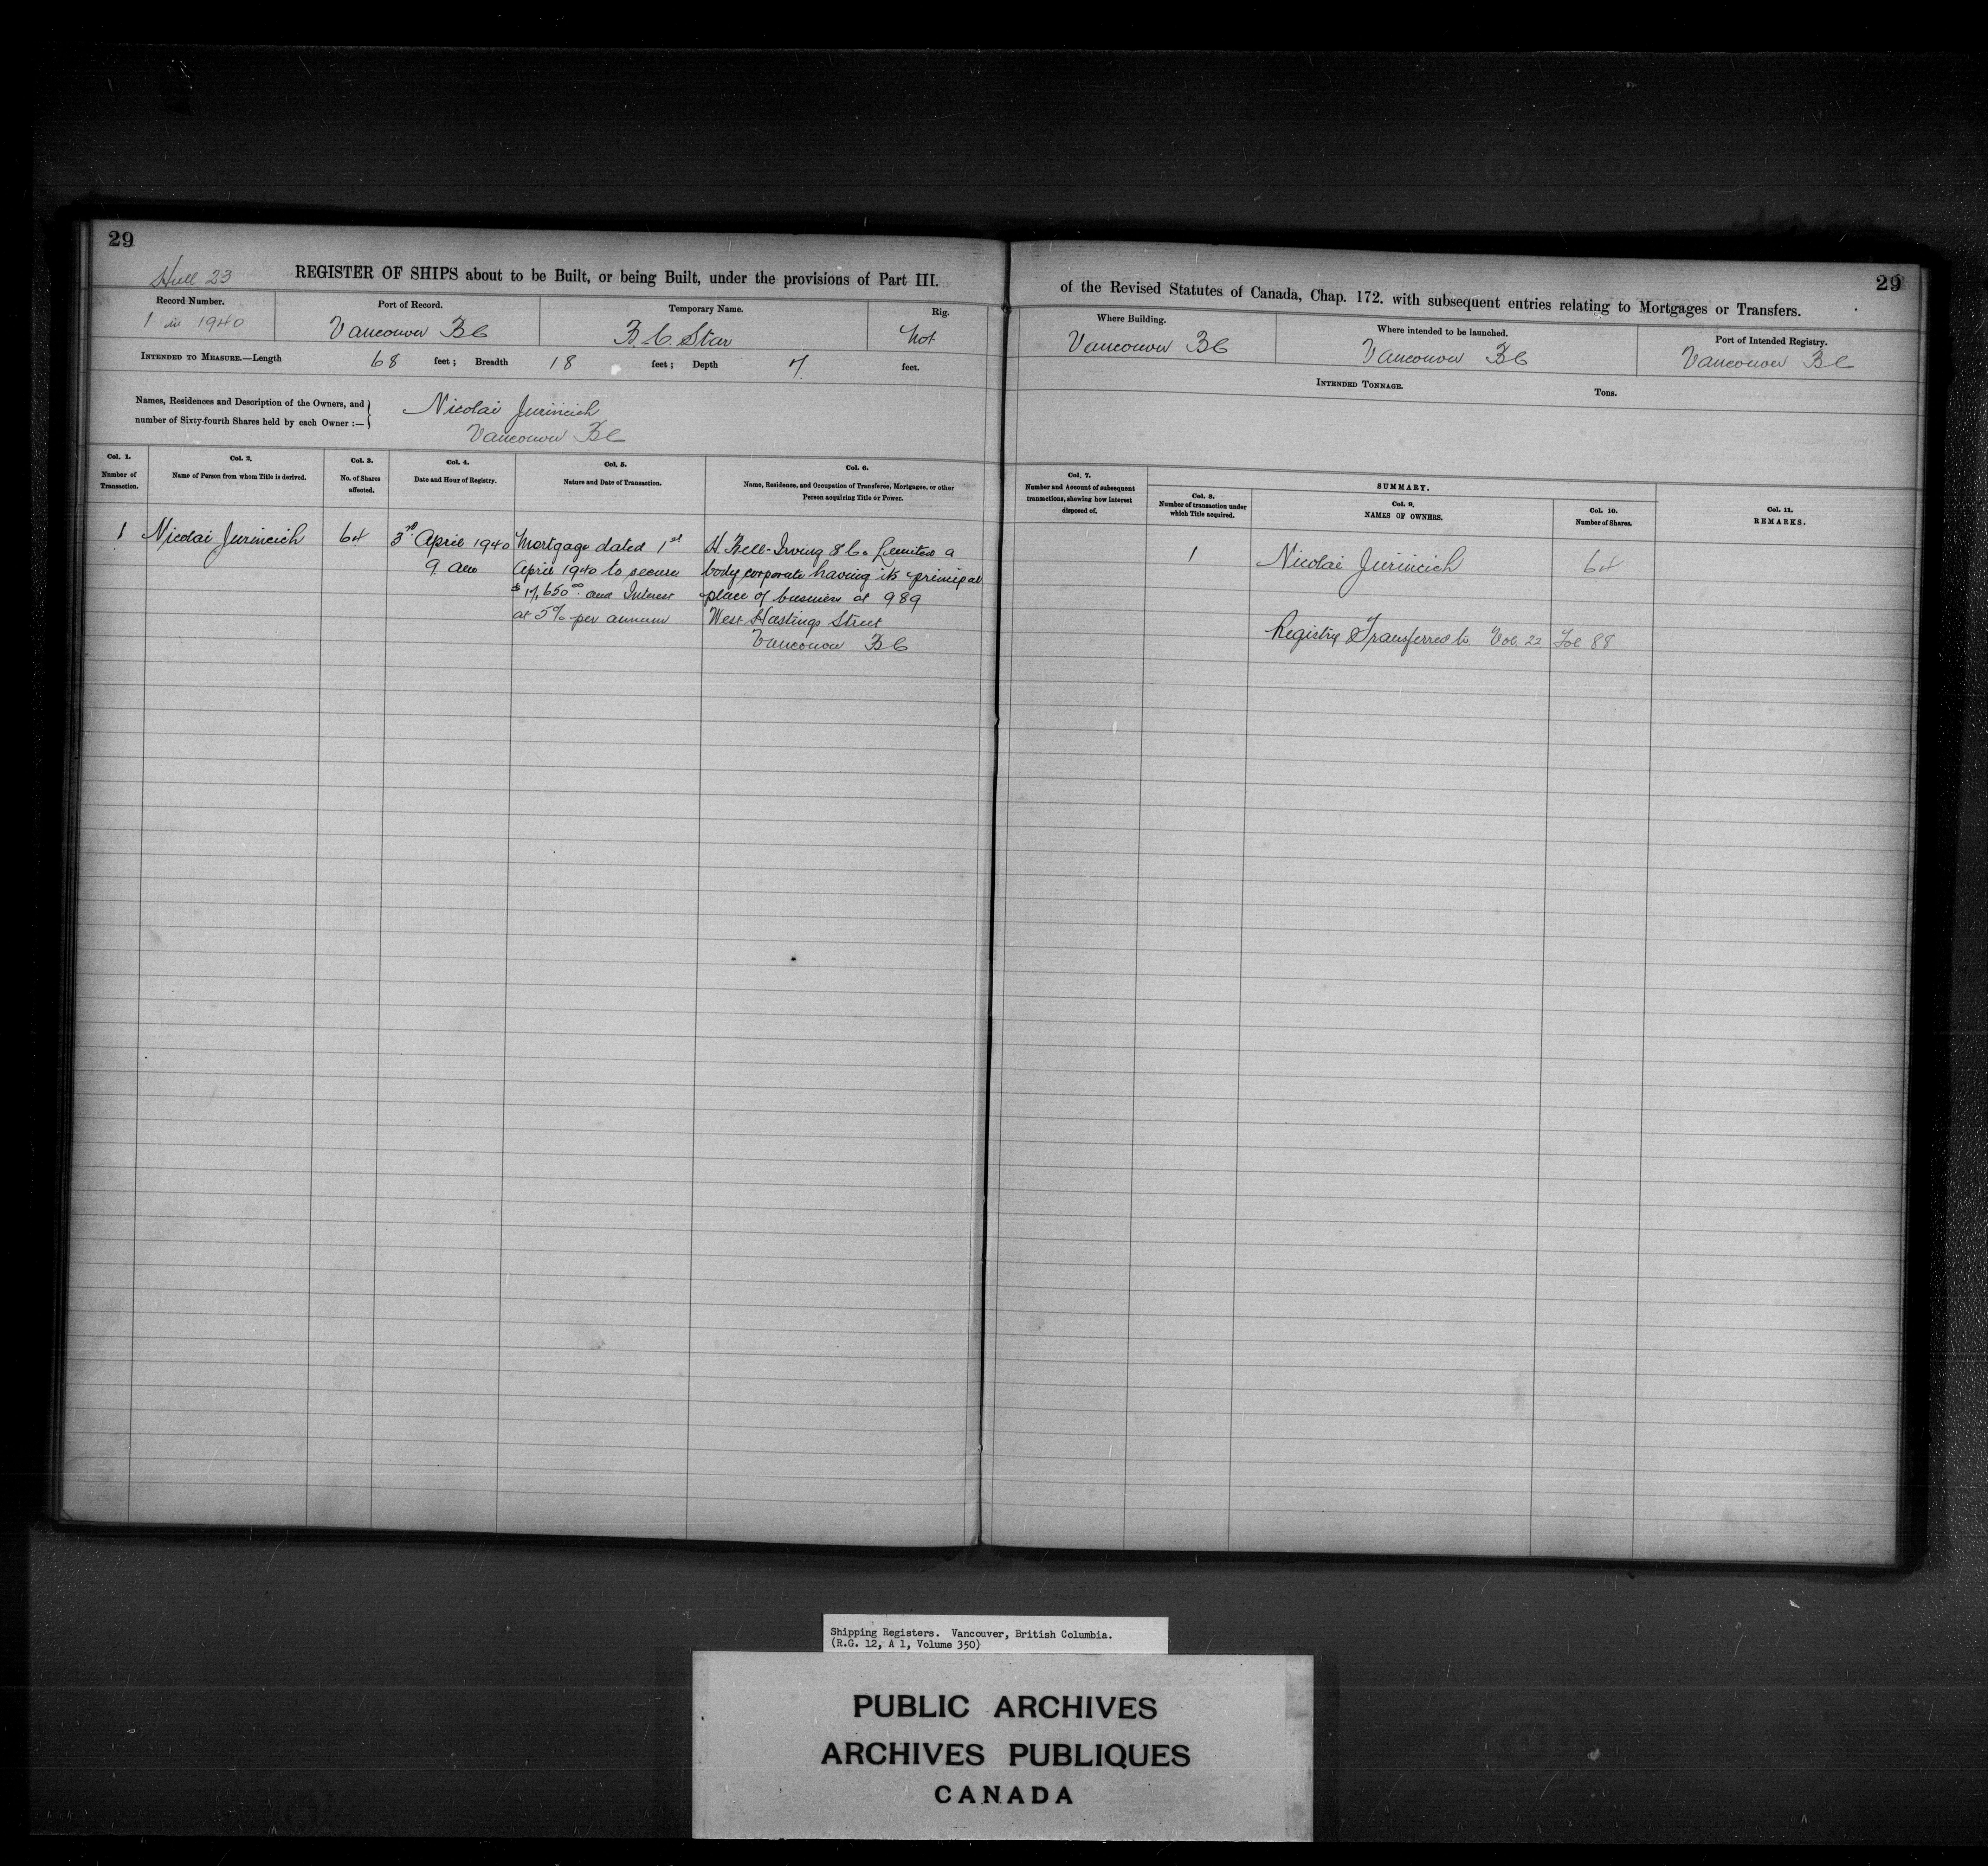 29
Hull 23
REGISTER OF SHIPS about to be Built, or being Built, under the provisions of Part III.
Record Number.
1 in 1940
Port of Record.
Vancouver BC
Temporary Name.
B.C. Star
Rig.
not
INTENDED TO MEASURE.—Length 68 feet; Breadth 18 feet; Depth 7 feet.
Names, Residences and Description of the Owners, and
number of Sixty-fourth Shares held by each Owner :—
Nicolai Jurincich
Vancouver BC
Col. 1.
Number of
Transaction.
Col. 2.
Name of Person from whom Title is derived.
Col. 3.
No. of Shares
affected.
Col. 4.
Date and Hour of Registry.
Col. 5.
Nature and Date of Transaction.
Col. 6.
Name, Residence, and Occupation of Transferee, Mortgagee, or other
Person acquiring Title or Power.
1
Nicolai Jurincich
64
3rd April 1940
9. am
Mortgage dated 1st
April 1940 to secure
$17,650.00 and Interest
at 5% per annum
H Bell-Irving & Co Limited a
body corporate having its principal
place of business at 989
West Hastings Street
Vancouver BC
29
of the Revised Statutes of Canada, Chap. 172. with subsequent entries relating to Mortgages or Transfers.
Where Building.
Vancouver BC
Where intended to be launched.
Vancouver BC
Port of Intended Registry.
Vancouver BC
INTENDED TONNAGE. Tons.
Col. 7.
Number and Account of subsequent
transactions, shewing how interest
disposed of.
SUMMARY.
Col. 8.
Number of transaction under
which Title acquired.
Col. 9.
NAMES OF OWNERS.
Col. 10.
Number of Shares.
Col. 11.
REMARKS.
1
Nicolai Jurincich
64
Registry Transferred to Vol. 22 Fol 88
Shipping Registers. Vancouver, British Columbia.
(R.G. 12, A 1, Volume 350)
PUBLIC ARCHIVES
ARCHIVES PUBLIQUES
CANADA